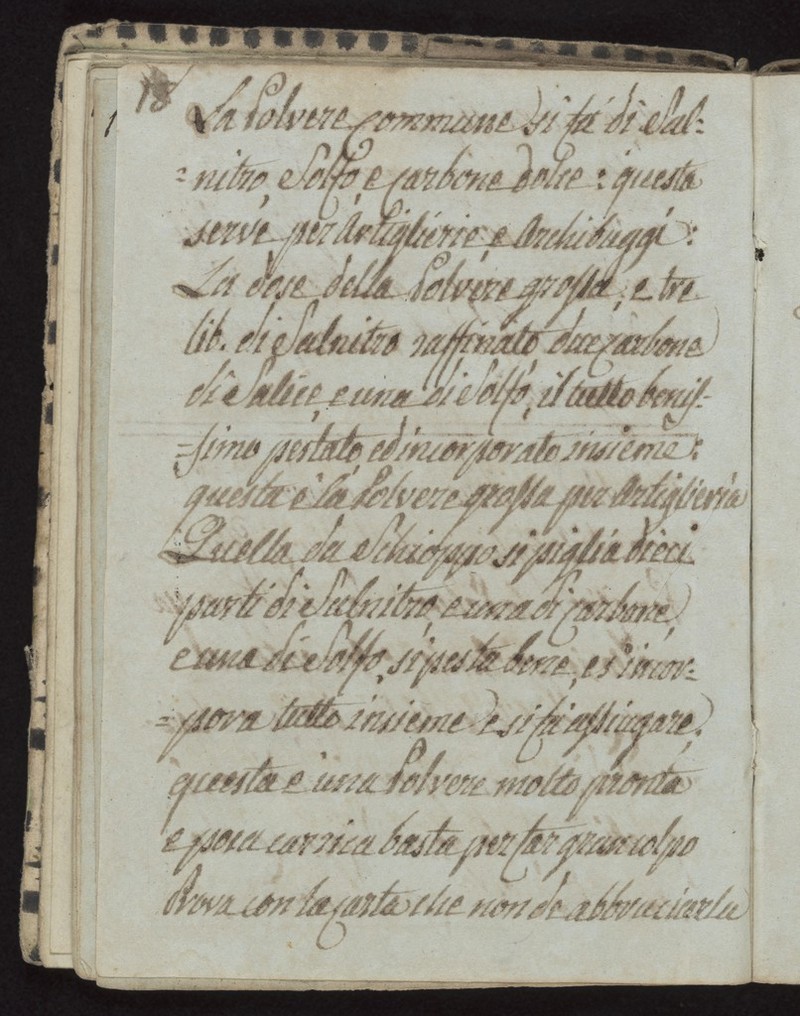 18
La Polvere commune si fà di Sal=
=nitro Solfo e carbone dolce: questa
serve per Artiglierie e Archibuggi:
La dose della Polvere grossa, e tre
lib. di Salnitro raffinato due carbone
di Salice, e una di Solfo, il tutto benis=
=simo pestato ed incorporato insieme:
questa è la Polvere grossa per Artiglieria
Quella da Schioppo si piglia dieci
parti di Salnitro, e una di carbone,
e una di Solfo, si pesta bene, e s'incor=
=pora tutto insieme e si fà assiugare,
questa è una Polvere molto pronta
e poca carrica basta per far gran colpo
Prova con la carta che non dè abbruciarla